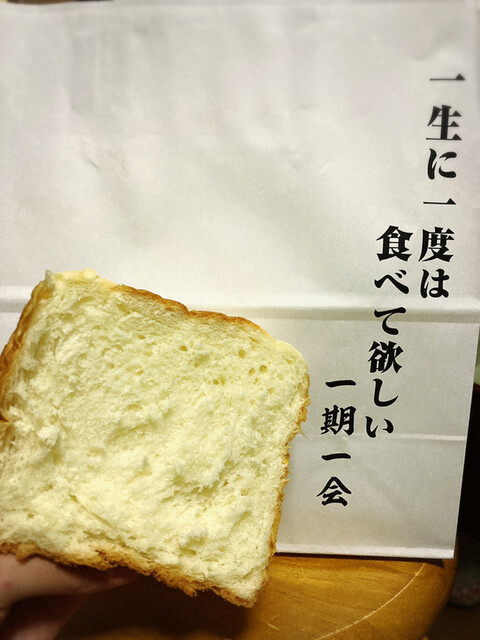 一生に一度は
食べて欲しい
一期一会